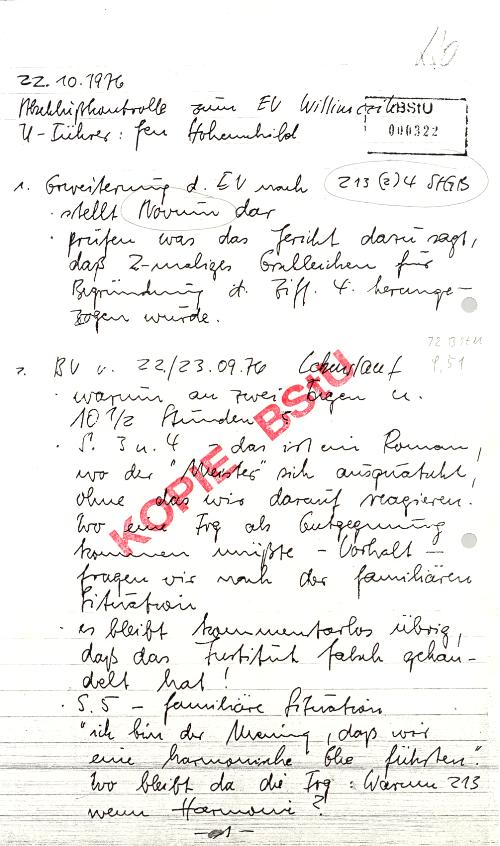 22.10.1976
Abschlußkontrolle zum EV
U-Führer: Gen Hohenhild
BStU
000322
1. Erweiterung d. EV nach 213 (2) 4 StGB
· stellt Novum dar
· prüfen was das Gericht dazu sagt,
daß 2-maliges Erschleichen für
Begründung d. Ziff. 4. herange-
zogen wurde.
72 BStU
S. 51
2. BV v. 22/23.09.76 Lebenslauf
· warum an zwei Tagen u.
10 1/2 Stunden?
· S. 3 u. 4 – das ist ein Roman,
wo der "Meister" sich ausquatscht,
ohne das wir darauf reagieren.
Wo eine Frg als Entgegnung
kommen müßte – Vorhalt –
fragen wir nach der familiären
Situation
· es bleibt kommentarlos übrig,
daß das Institut falsch gehan-
delt hat!
· S. 5 – familiäre Situation
"ich bin der Meinung, daß wir
eine harmonische Ehe führten".
Wo bleibt da die Frg: Warum 213
wenn Harmonie?
- 1 -
KOPIE BStU